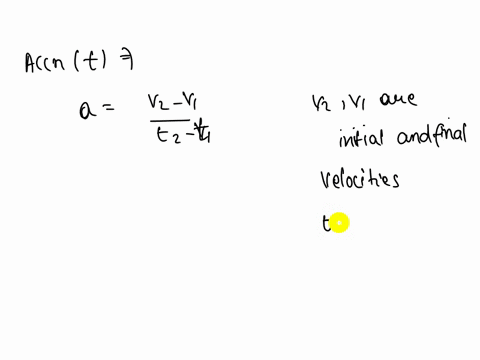 Accn (t) ⇒
a = v2 - v1 / t2 - t1
v2, v1 are
initial and final
velocities
t